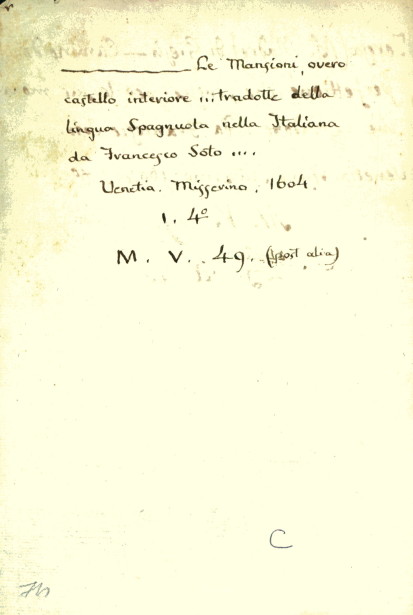 Le Mansioni, overo
castello interiore ... tradotte della
lingua Spagnuola, nella Italiana
da Francesco Soto ....
Venetia. Misserino, 1604.
1. 4º
M. V. 49. (post alia)
C